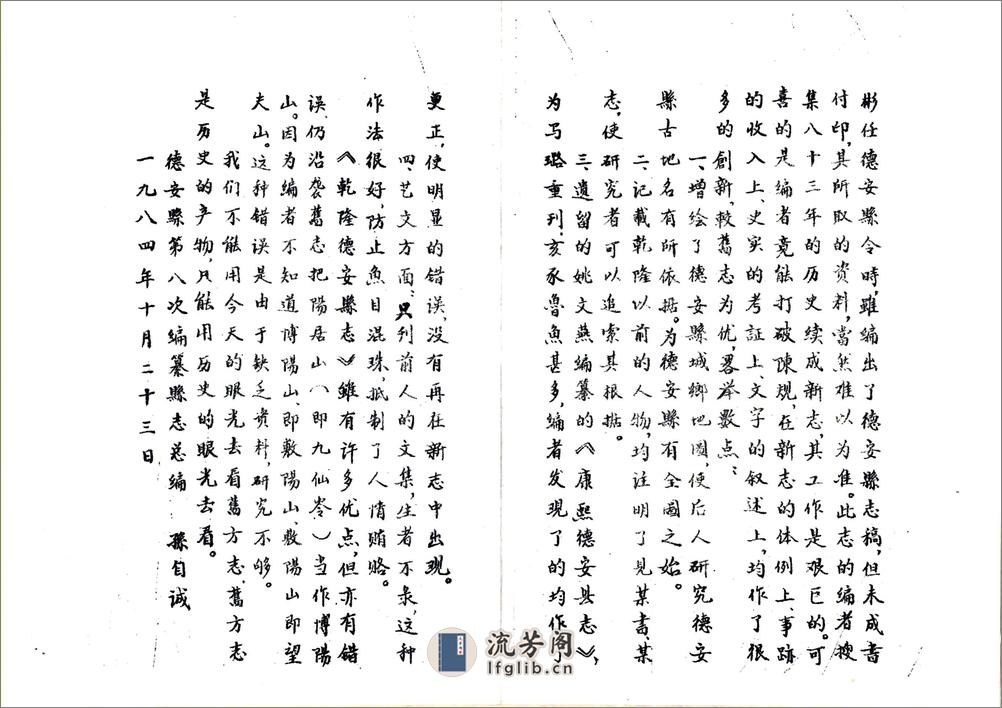 彬任德安縣令時，雖編出了德安縣志稿，但未成書
付印，其所取的资料，當然难以为准。此志的编者搜
集八十三年的历史续成新志，其工作是艰巨的。可
喜的是编者竟能打破陳規，在新志的体例上、事跡
的收入上、史实的考証上、文字的叙述上，均作了很
多的創新，較舊志为优，畧举數点：
一、增绘了德安縣城鄉地圖，使后人研究德安
縣古地名有所依据。为德安縣有全圖之始。
二、记載乾隆以前的人物，均注明了見某書、某
志，使研究者可以追索其根据。
三、遺留的姚文燕编纂的《康熙德安县志》，
为马璐重刊，亥豕魯魚甚多，编者发現了的均作了
更正，使明显的错误，没有再在新志中出現。
四、艺文方面：只刊前人的文集，生者不录，这种
作法很好，防止魚目混珠，抵制了人情贿賂。
《乾隆德安縣志》雖有许多优点，但亦有错
误，仍沿襲舊志把陽居山（即九仙岺）当作博陽
山。因为编者不知道博陽山、即敷陽山、敷陽山即望
夫山。这种错误是由于缺乏资料，研究不够。
我们不能用今天的眼光去看舊方志，舊方志
是历史的产物，只能用历史的眼光去看。
德安縣第八次编纂縣志总编 孫自诚
一九八四年十月二十三日
流芳阁
lfglib.cn